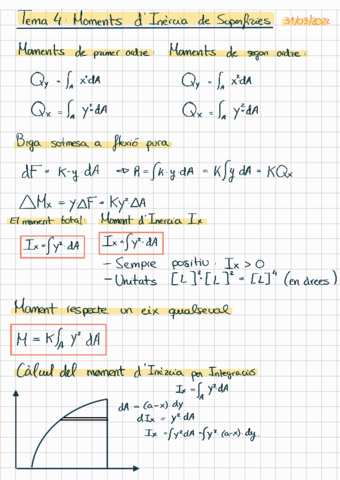 Tema 4: Moments d'Inèrcia de Superfícies 31/03/2022
Moments de primer ordre: Moments de segon ordre:
Qy = ∫A x¹dA Qy = ∫A x²dA
Qx = ∫A y¹dA Qx = ∫A y²dA
Biga sotmesa a flexió pura
dF = K·y dA ⇒ R = ∫K·y dA = K∫y dA = KQx
△Mx = y△F = Ky²△A
El moment total Moment d'Inèrcia Ix
Ix = ∫y²·dA Ix = ∫y²·dA
- Sempre positiu: Ix > 0
- Unitats [L]²·[L]² = [L]⁴ (en àrees)
Moment respecte un eix qualsevol
M = K∫A y²·dA
Càlcul del moment d'Inèrcia per Integració
Ix = ∫A y²dA
dA = (a-x)·dy
dIx = y²dA
Ix = ∫y²dA = ∫y²·(a-x)·dy